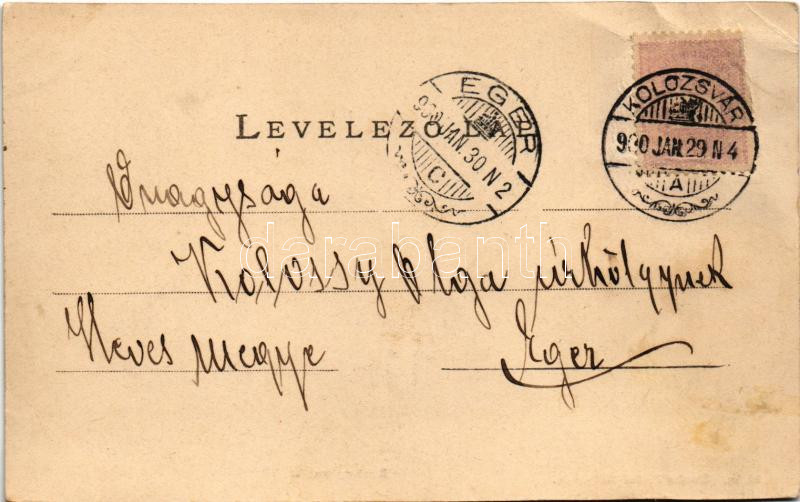 EGER
900 JAN. 30 N 2
C
KOLOZSVÁR
900 JAN. 29 N 4
A
LEVELEZŐ-L
Őnagysága
Kolossy Olga úrhölgynek
Heves megye Eger
darabanth